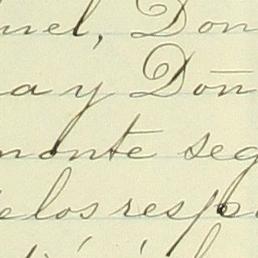 uel, Don
a y Don
monte seg
elos resp